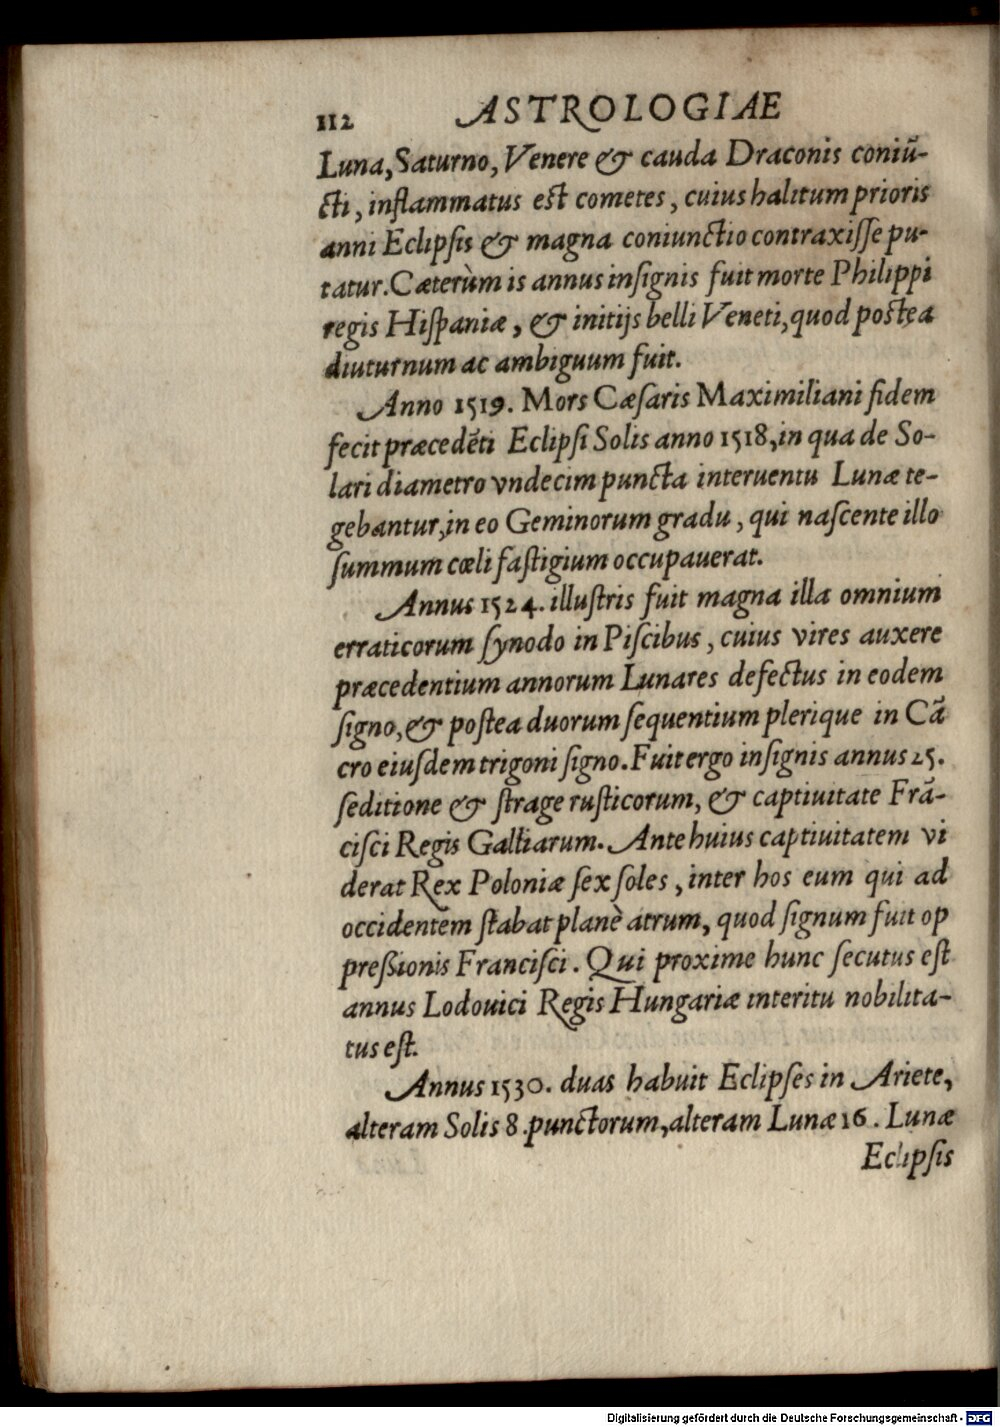 112 ASTROLOGIAE
Luna, Saturno, Venere & cauda Draconis coniũ-
cti, inflammatus est cometes, cuius halitum prioris
anni Eclipsis & magna coniunctio contraxisse pu-
tatur. Cæterùm is annus insignis fuit morte Philippi
regis Hispaniæ, & initijs belli Veneti, quod postea
diuturnum ac ambiguum fuit.
Anno 1519. Mors Cæsaris Maximiliani fidem
fecit præcedẽti Eclipsi Solis anno 1518, in qua de So-
lari diametro vndecim puncta interuentu Lunæ te-
gebantur, in eo Geminorum gradu, qui nascente illo
summum cœli fastigium occupauerat.
Annus 1524. illustris fuit magna illa omnium
erraticorum synodo in Piscibus, cuius vires auxere
præcedentium annorum Lunares defectus in eodem
signo, & postea duorum sequentium plerique in Cã
cro eiusdem trigoni signo. Fuit ergo insignis annus 25.
seditione & strage rusticorum, & captiuitate Frã-
cisci Regis Galliarum. Ante huius captiuitatem vi
derat Rex Poloniæ sex soles, inter hos eum qui ad
occidentem stabat planè atrum, quod signum fuit op
preßionis Francisci. Qui proxime hunc secutus est
annus Lodouici Regis Hungariæ interitu nobilita-
tus est.
Annus 1530. duas habuit Eclipses in Ariete,
alteram Solis 8. punctorum, alteram Lunæ 16. Lunæ
Eclipsis
Digitalisierung gefördert durch die Deutsche Forschungsgemeinschaft - DFG